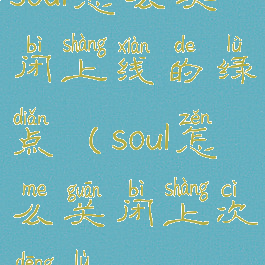 soul怎么关
bì shàng xiàn de lǜ
闭上线的绿
diǎn zěn
点(soul怎
me guān bì shàng cì
么关闭上次
dēng lù